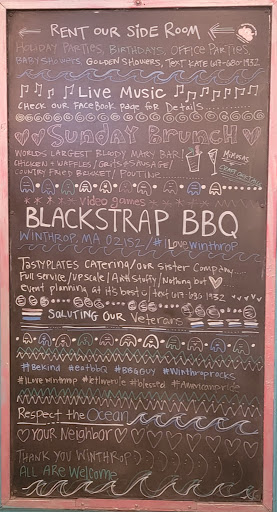 RENT OUR SIDE ROOM
HOLIDAY PARTIES, BIRTHDAYS, OFFICE PARTIES,
BABY SHOWERS, GOLDEN SHOWERS, TEXT KATE 617-680-1932
Live Music
CHECK OUR FACEBOOK page for Details
Sunday BRUNCH
WORLDS LARGEST BLOODY MARY BAR!
MIMOSAS
CHICKEN & WAFFLES / GRITS & SAUSAGE
COUNTRY FRIED BRISKET / POUTINE
video games
BLACKSTRAP BBQ
WINTHROP, MA 02152 / # I LOVE Winthrop
TASTYPLATES CATERING / OUR SISTER COMPANY....
Full Service / UPSCALE / And STUFF / Nothing but
Event planning at it's best c/text 617 680 1932
SOLUTING OUR Veterans
#BeKind #eatbbq #BBGGUY #Winthroprocks
#ILOVE Winthrop #blessed
Respect the Ocean
YOUR Neighbor
THANK YOU WINTHROP
ALL ARE Welcome